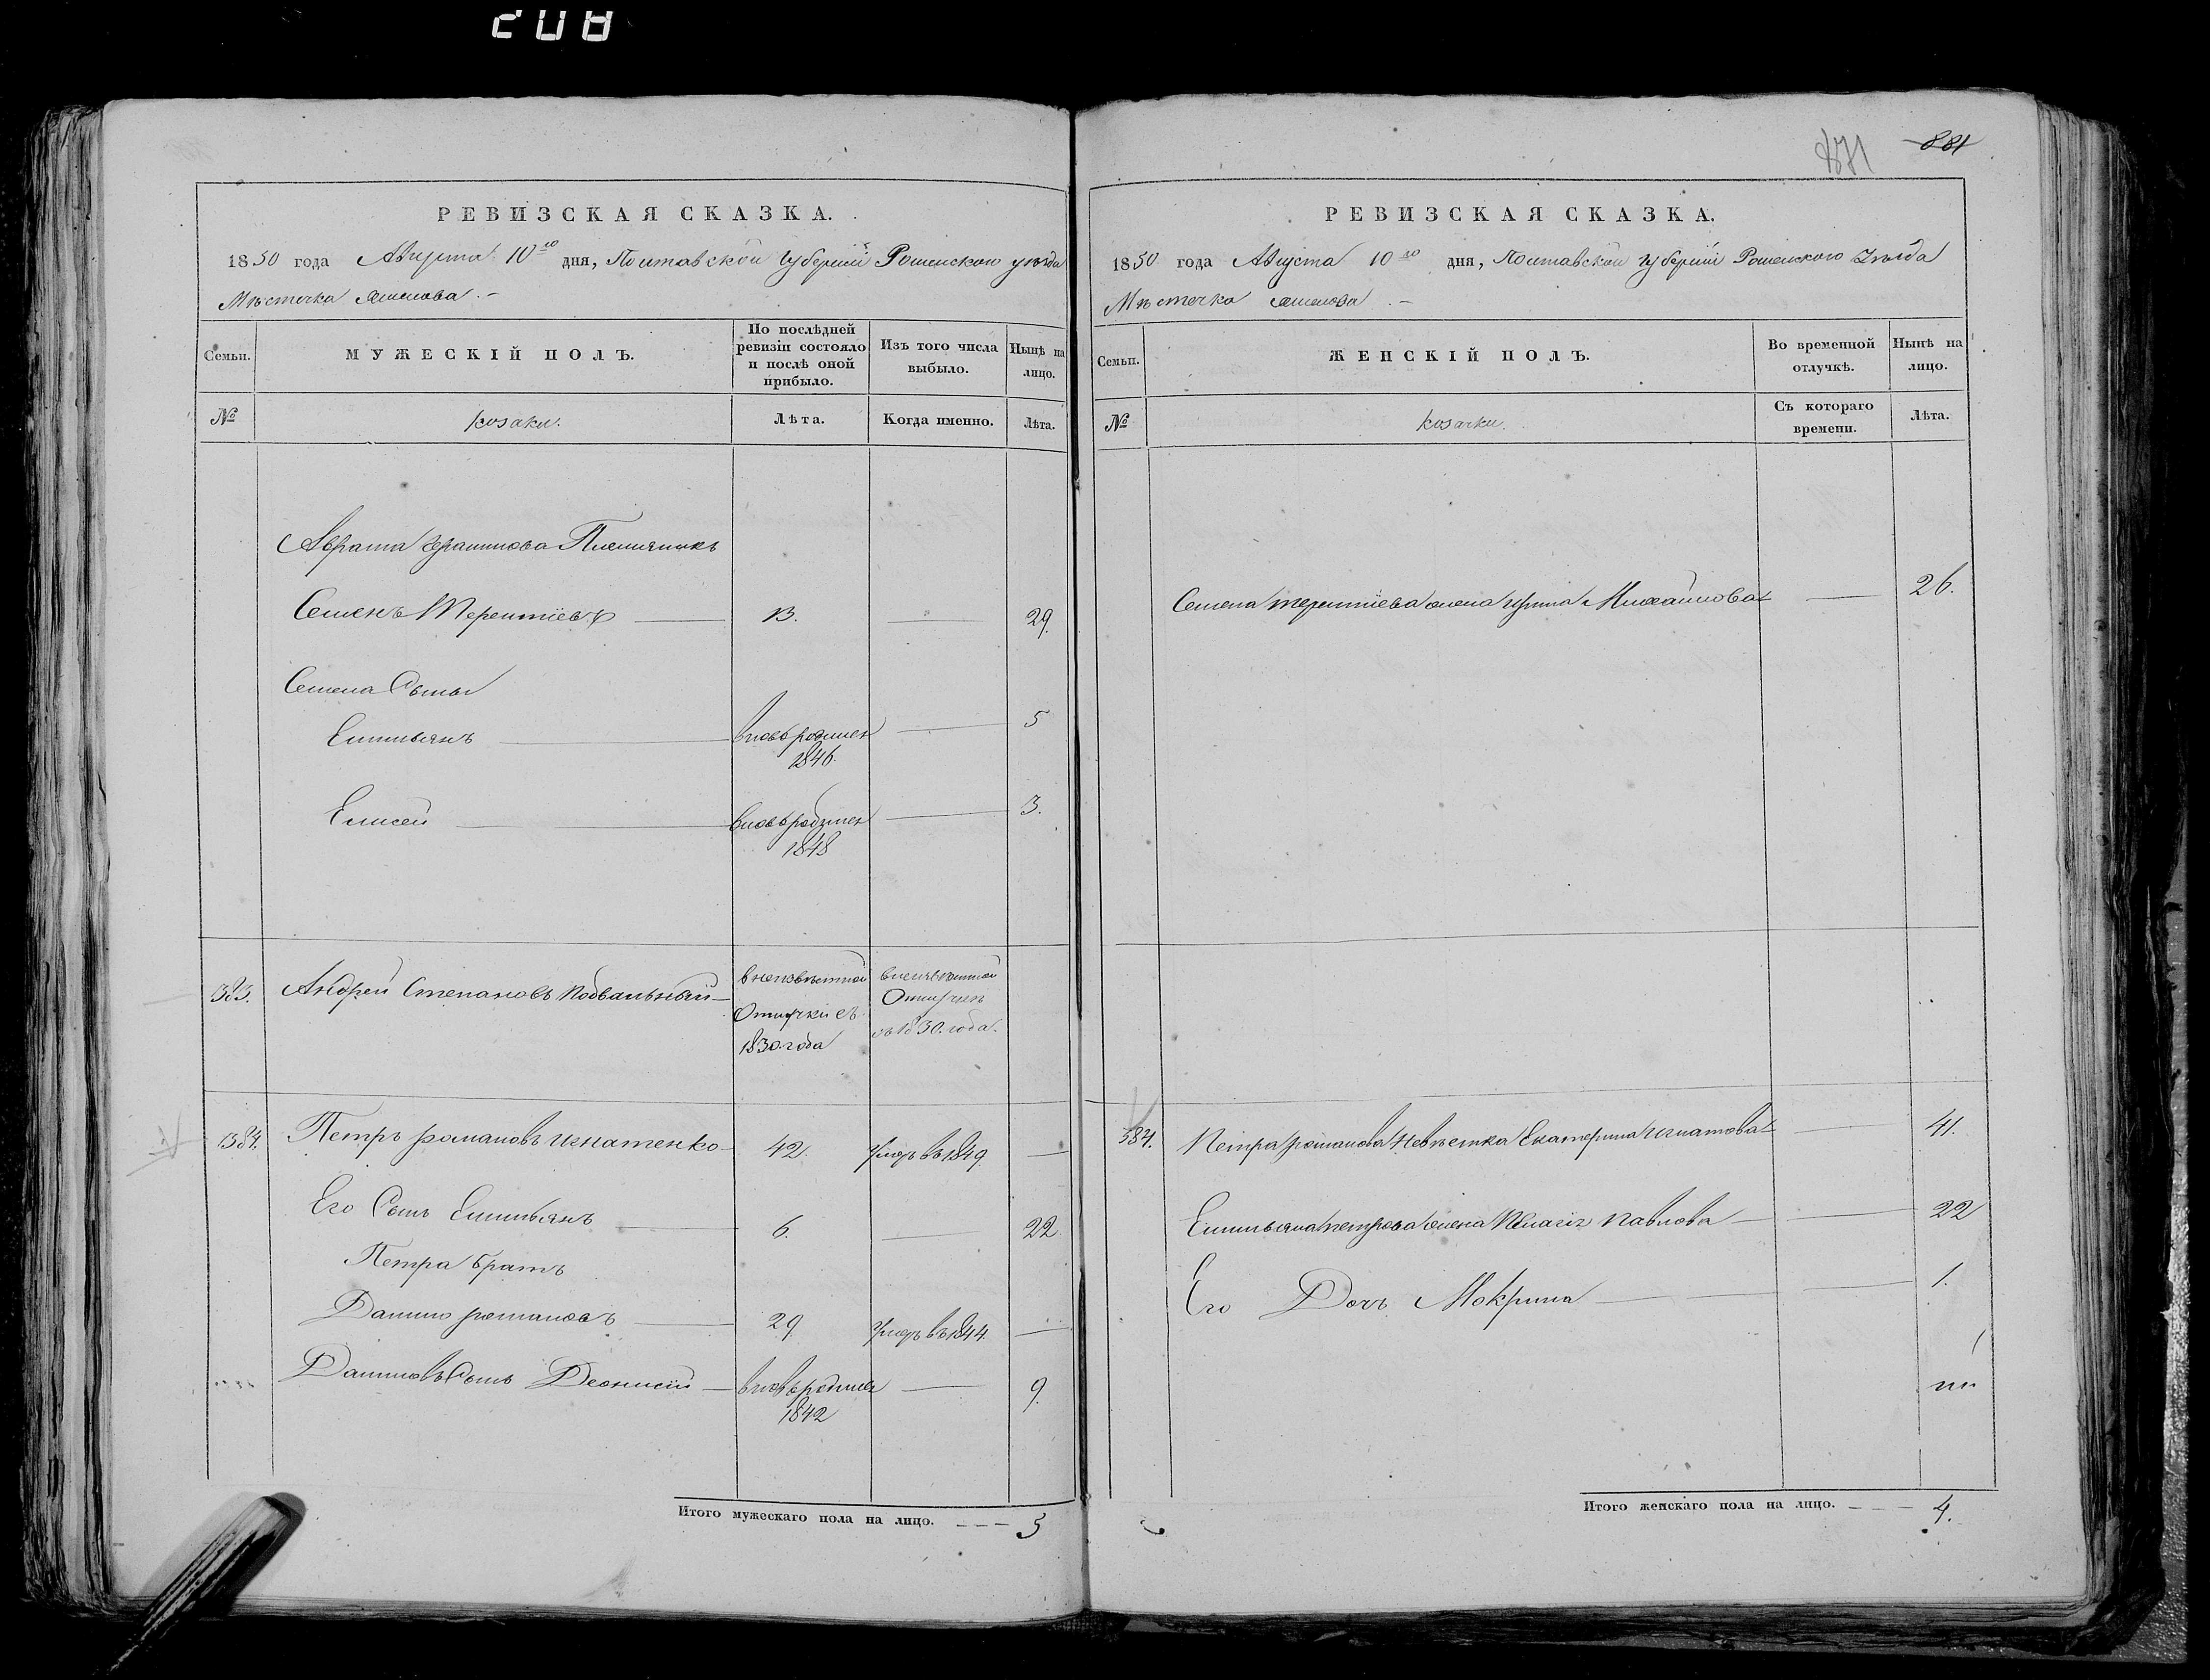 208
РЕВИЗСКАЯ СКАЗКА.
1850 года Августа 10го дня, Полтавской Губерніи Роменскаго уѣзда
Мѣстечка
Семьи.
МУЖЕСКІЙ ПОЛЪ.
По послѣдней ревизіи состояло и послѣ оной прибыло.
Изъ того числа выбыло.
Нынѣ на лицо.
№
козаки.
Лѣта.
Когда именно.
Лѣта.
Племянникъ
Семенъ Терентіевъ 13. 29.
Семена Сыны
Емильянъ вновь рожден 5
1846
Елисей вновь рожден 3.
1848
383. Андрей Степановъ Подвальный
в неизвѣстной Отлучки съ 1830 года
в неизвѣстной Отлучки съ 1830. года.
384. Петръ романовъ игнатенко 42. умеръ въ 1849.
Его Сынъ Емильянъ 6. 22.
Петра братъ
Данило романовъ 29. умеръ въ 1844.
Даниловъ Сынъ Деонисій вновь рожден 9.
1842
Итого мужескаго пола на лицо. 5
871 881
РЕВИЗСКАЯ СКАЗКА.
1850 года Августа 10го дня, Полтавской Губерніи Роменскаго Уѣзда
Мѣстечка
Семьи.
ЖЕНСКІЙ ПОЛЪ.
Во временной отлучкѣ.
Нынѣ на лицо.
№
козачки.
Съ котораго времени.
Лѣта.
Семена терентіева жена Ирина Михайлова 26.
384. Петра романова Невѣстка Екатерина игнатова 41.
Емильяна петрова жена Пелагія павлова 22
Его Дочь Мокрина 1.
Итого женскаго пола на лицо. 4.